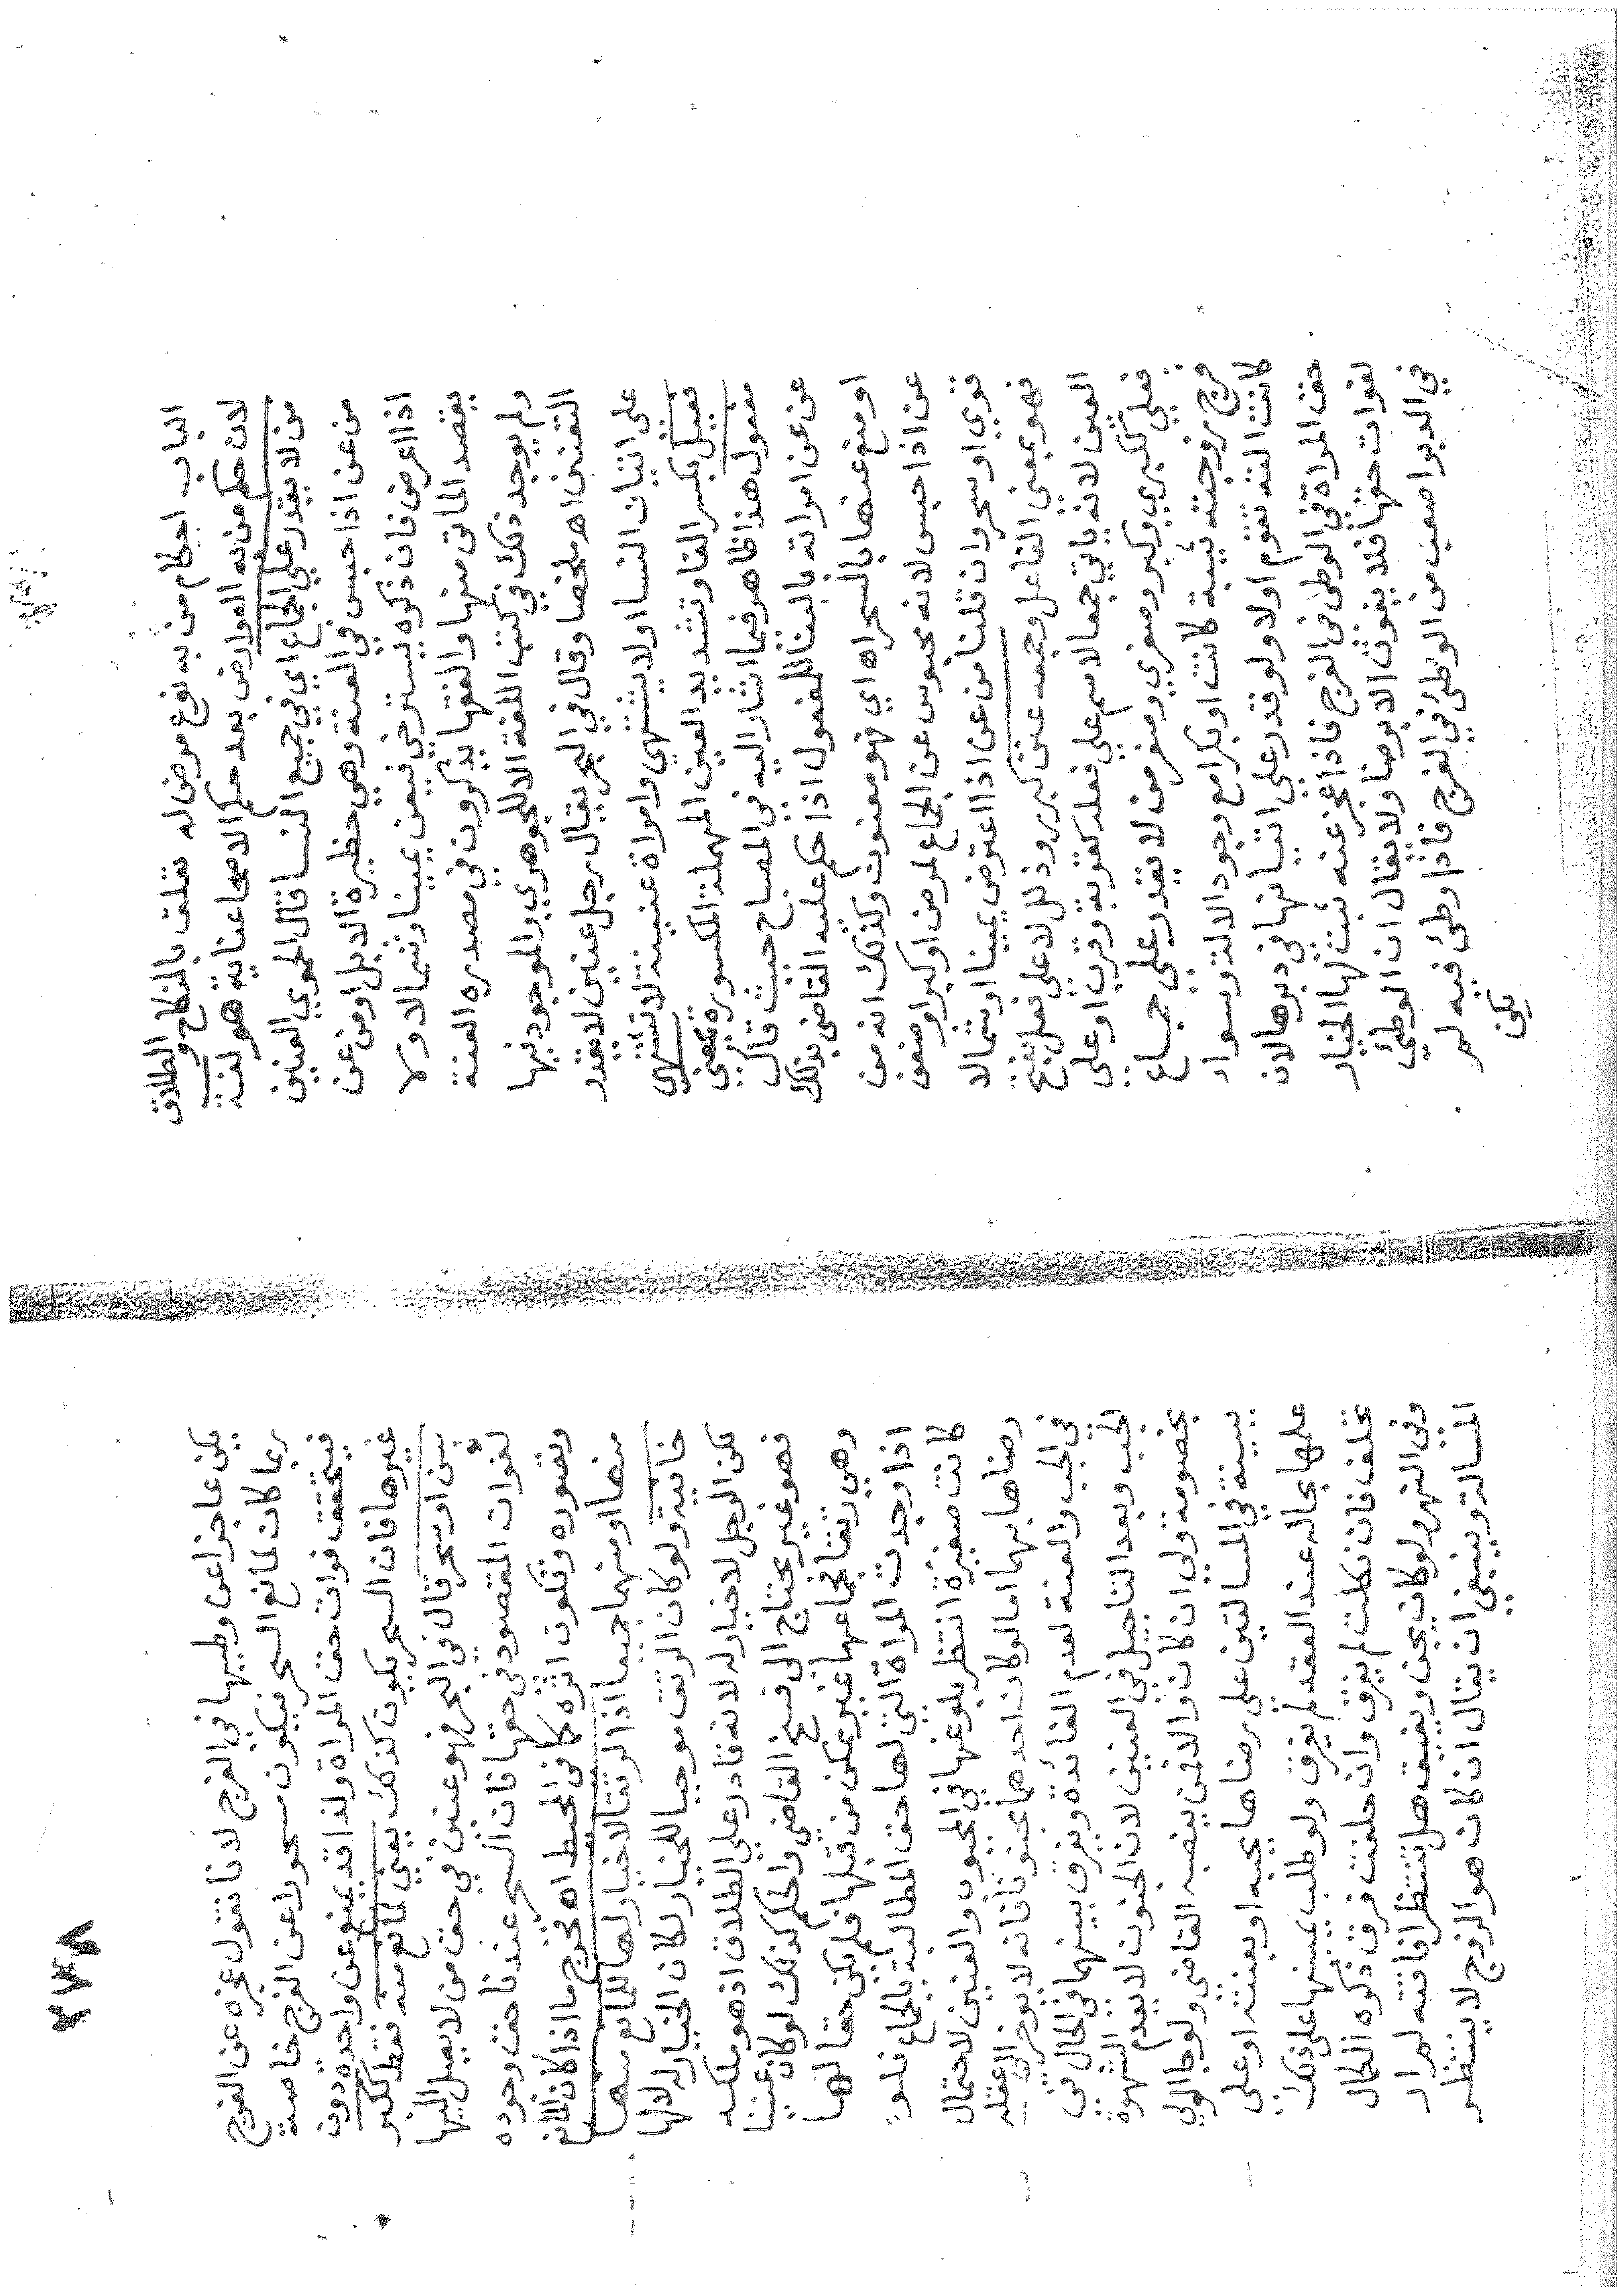 الباب احكام من به نوع مرض له تعلق بالنكاح والطلاق
لان حكم من به العوارض بعد حكم الاصحا عناية هو لغة
من لا يقدر علي الجماع اي في جميع النسا قال الحموي العنين
من عن اذا حبس في العنة وهي حظيرة الابل او من عن
اذا اعرض فان ذكره يسترخي فيعن يمينا وشمالا ولا
يقصد الماتى منها والفقها يذكرون في مصدره العنة
ولم يوجد ذلك في كتب اللغة الا للجوهري والموجود فيها
التعنن اه ملخصا وقال في البحر يقال رجل عنين لا يقدر
على اتيان النسا او لا يشتهي وامراة عنينة لا تشتهي
فعيل بكسر الفا وتشديد العين المهملة المكسورة بمعنى
مفعول هذا ظاهر فيما اشار اليه في المصباح حيث قال
عن عن امراته بالبنا للمفعول اذا حكم عليه القاضي بذلك
او منع عنها بالسحر اه اي فهو معنون وكذلك انه من
عن اذا حبس لانه محبوس عن الجماع لمرض او كبر او ضعف
قوي او سحر وان قلنا من عن اذا اعترض يمينا او شمالا
فهو بمعنى الفاعل وجمعه عنن كبرر وذلل لا على فعل بفتح
العين لانه ياتي جمعا لاسم علي فعلة كقربة وقرب او على
فعلي ككبري وكبر وصغري وصغر من لا يقدر علي جماع
فرج زوجته ثيبة كانت او بكرا مع وجود الالة وسواء
كانت الته تقوم او لا ولو قدر علي اتيانها في دبرها لان
حق المراة في الوطئ في الفرج فاذا عجز عنه ثبت لها الخيار
لفوات حقها فلا يفوت الا برضا ولا يقال ان الوطئ
في الدبر اصعب من الوطئ في الفرج فاذا وطئ فيه لم
يكن
٢٧٨
يكن عاجزا عن وطيها في الفرج لانا نقول عجزه عن الفرج
ربما كان لمانع السحر فيكون مسحورا عن الفرج خاصة
فيتحقق فوات حق المراة ولذا قد يعنو عن واحدة دون
غيرها فان السحر يكون كذلك يعني لمانع منه فقط لكبر
سن او سحر قال في البحر فهو عنين في حق من لا يصل اليها
لفوات المقصود في حقها فان السحر عندنا حق وجوده
وتصوره وتكون اثره كما في المحيط اه تخرج ما اذا كان المانع
منها او منهما جميعا اذ الرتقا لا خيار لها للمانع منها
خانية ولو كان الرتق موجبا للخيار لكان الخيار له لا لها
لكن الرجل لا خيار له لانه قادر علي الطلاق اذ هو ملكه
فهو غير محتاج الى فسخ القاضي والحكم كذلك لو كان عنينا
وهي رتقا فجماعها غير ممكن من قبلها فلم يكن حقا لها
اذا وجدت المراة التي لها حق المطالبة بالجماع فلو
كانت صغيرة انتظر بلوغها في المجبوب والعنين لاحتمال
رضاها بهما اما لو كان احدهما مجنونا فانه لا يوخر الى عقله
في الجب والعنة لعدم الفائدة ويفرق بينهما في الحال في
الجب وبعد التاجيل في العنين لان الجنون لا يعدم الشهوة
بخصومة ولي ان كان والا فمن ينصبه القاضي ولو جا الولي
ببينة في المسالتين على رضاها بجبه او بعنته او على
علمها بحاله عند العقد لم يفرق ولو طلب يمينها على ذلك
تحلف فان نكلت لم يفرق وان حلفت فرق ذكره الكمال
وفي النهر لو كان يجن ويفيق هل تنتظر افاقته لم ار
المسالة وينبغي ان يقال ان كان هو الزوج لا ينتظر